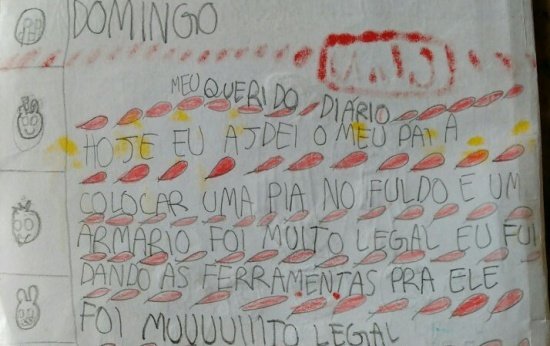 DOMINGO
MEU QUERIDO DIÁRIO
HOJE EU AJDEI O MEU PAI A
COLOCAR UMA PIA NO FULDO E UM
ARMARIO FOI MUITO LEGAL EU FUI
DANDO AS FERRAMENTAS PRA ELE
FOI MUUUUIIITO LEGAL